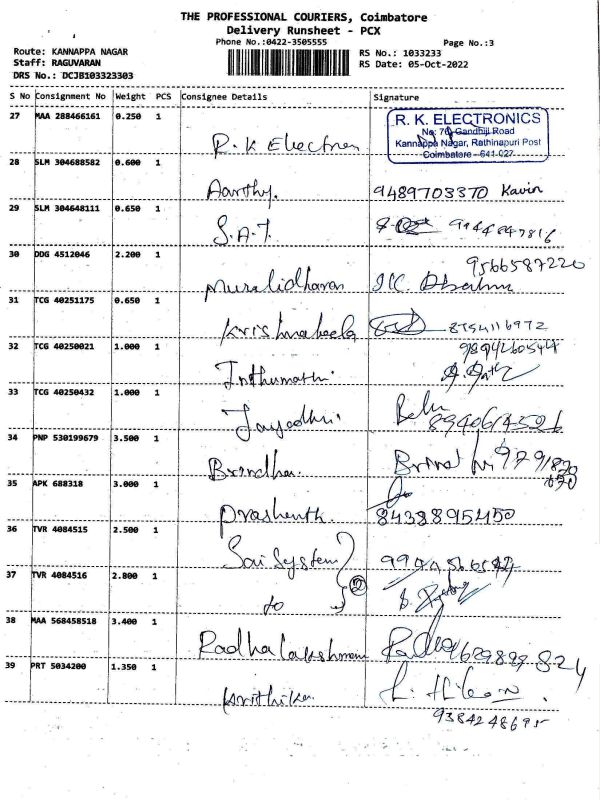 THE PROFESSIONAL COURIERS, Coimbatore
Delivery Runsheet - PCX
Phone No.:0422-3505555
Page No.:3
Route: KANNAPPA NAGAR
RS No.: 1033233
Staff: RAGUVARAN
RS Date: 05-Oct-2022
DRS No.: DCJB103323303
S No Consignment No Weight PCS Consignee Details Signature
27 MAA 288466161 0.250 1
R. K. ELECTRONICS
No: 76, Gandhiji Road
Kannappa Nagar, Rathinapuri Post
Coimbatore - 641 027
R.K Electron
28 SLM 304688582 0.600 1
Aarthy. 9489703370 Kavin
29 SLM 304648111 0.650 1
S.A.T.
30 DDG 4512046 2.200 1
9566587220
Muralidharan
31 TCG 40251175 0.650 1
8754116972
32 TCG 40250021 1.000 1
Inthumathi
33 TCG 40250432 1.000 1
34 PNP 530199679 3.500 1
Brindha.
35 APK 688318 3.000 1
Prashanth. 8438895450
36 TVR 4084515 2.500 1
Sai System
37 TVR 4084516 2.800 1
to
38 MAA 568458518 3.400 1
Radhalakshmi
39 PRT 5034200 1.350 1
Krithika.